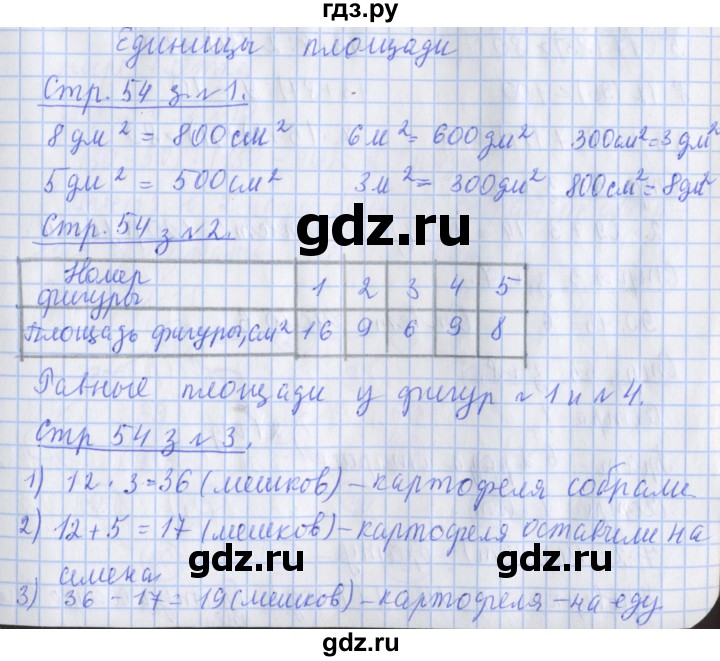 гдз.ру
Единицы площади
Стр. 54 з. №1.
8дм² = 800см² 6м² = 600дм² 300см² = 3дм²
5дм² = 500см² 3м² = 300дм² 800см² = 8дм²
Стр. 54 з №2.
gdz.ru
Номер фигуры 1 2 3 4 5
Площадь фигуры, см² 16 9 6 9 8
Равные площади у фигур №1 и №4.
Стр 54 з №3.
1) 12 · 3 = 36 (мешков) – картофеля собрали
2) 12 + 5 = 17 (мешков) – картофеля оставили на
gdz.ru
семена
3) 36 – 17 = 19 (мешков) – картофеля – на еду
gdz.ru